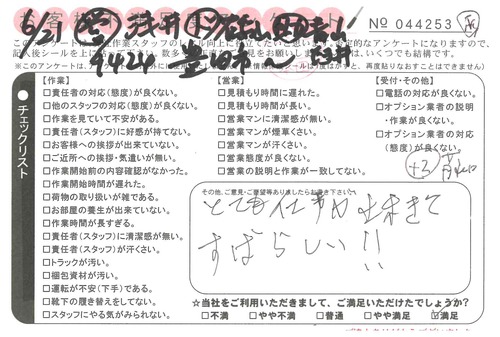 No 044253
6/21
4424
【作業】
□責任者の対応（態度）が良くない。
□他のスタッフの対応（態度）が良くない。
□作業を見ていて不安がある。
□責任者（スタッフ）に好感が持てない。
□お客様への挨拶が出来ていない。
□ご近所への挨拶・気遣いが無い。
□作業開始前の内容確認がなかった。
□作業開始時間が遅れた。
□荷物の取り扱いが雑である。
□お部屋の養生が出来ていない。
□作業時間が長すぎる。
□責任者（スタッフ）に清潔感が無い。
□責任者（スタッフ）が汗くさい。
□トラックが汚い。
□梱包資材が汚い。
□運転が不安（下手）である。
□靴下の履き替えをしてない。
□スタッフにやる気がみられない。
チェックリスト
【営業】
□見積もり時間に遅れた。
□見積もり時間が長い。
□営業マンに清潔感が無い。
□営業マンが煙草くさい。
□営業マンが汗くさい。
□営業態度が良くない。
□営業の説明と作業が一致してない。
【受付・その他】
□電話の対応が良くない。
□オプション業者の説明
・作業が良くない。
□オプション業者の対応
（態度）が良くない。
+3
その他、ご意見・ご要望等ありましたらお書き下さい
とても仕事が出来きて
すばらしい!!
☆当社をご利用いただきまして、ご満足いただけたでしょうか？
□不満 □やや不満 □普通 □やや満足 ☑満足